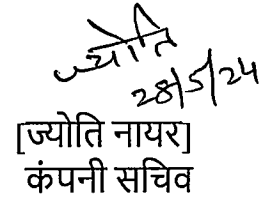 ज्योति
28/5/24
[ज्योति नायर]
कंपनी सचिव